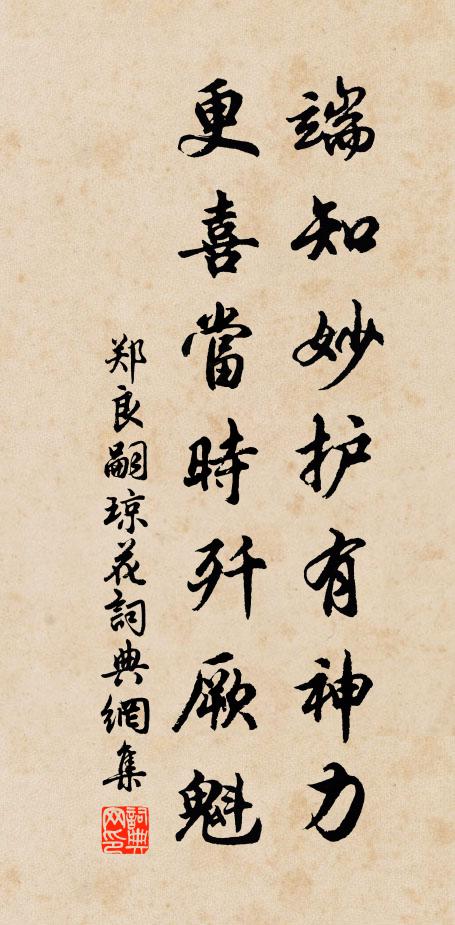 端知妙护有神力
更喜當時歼厥魁
郑良嗣琼花詞典網集
詞典网印